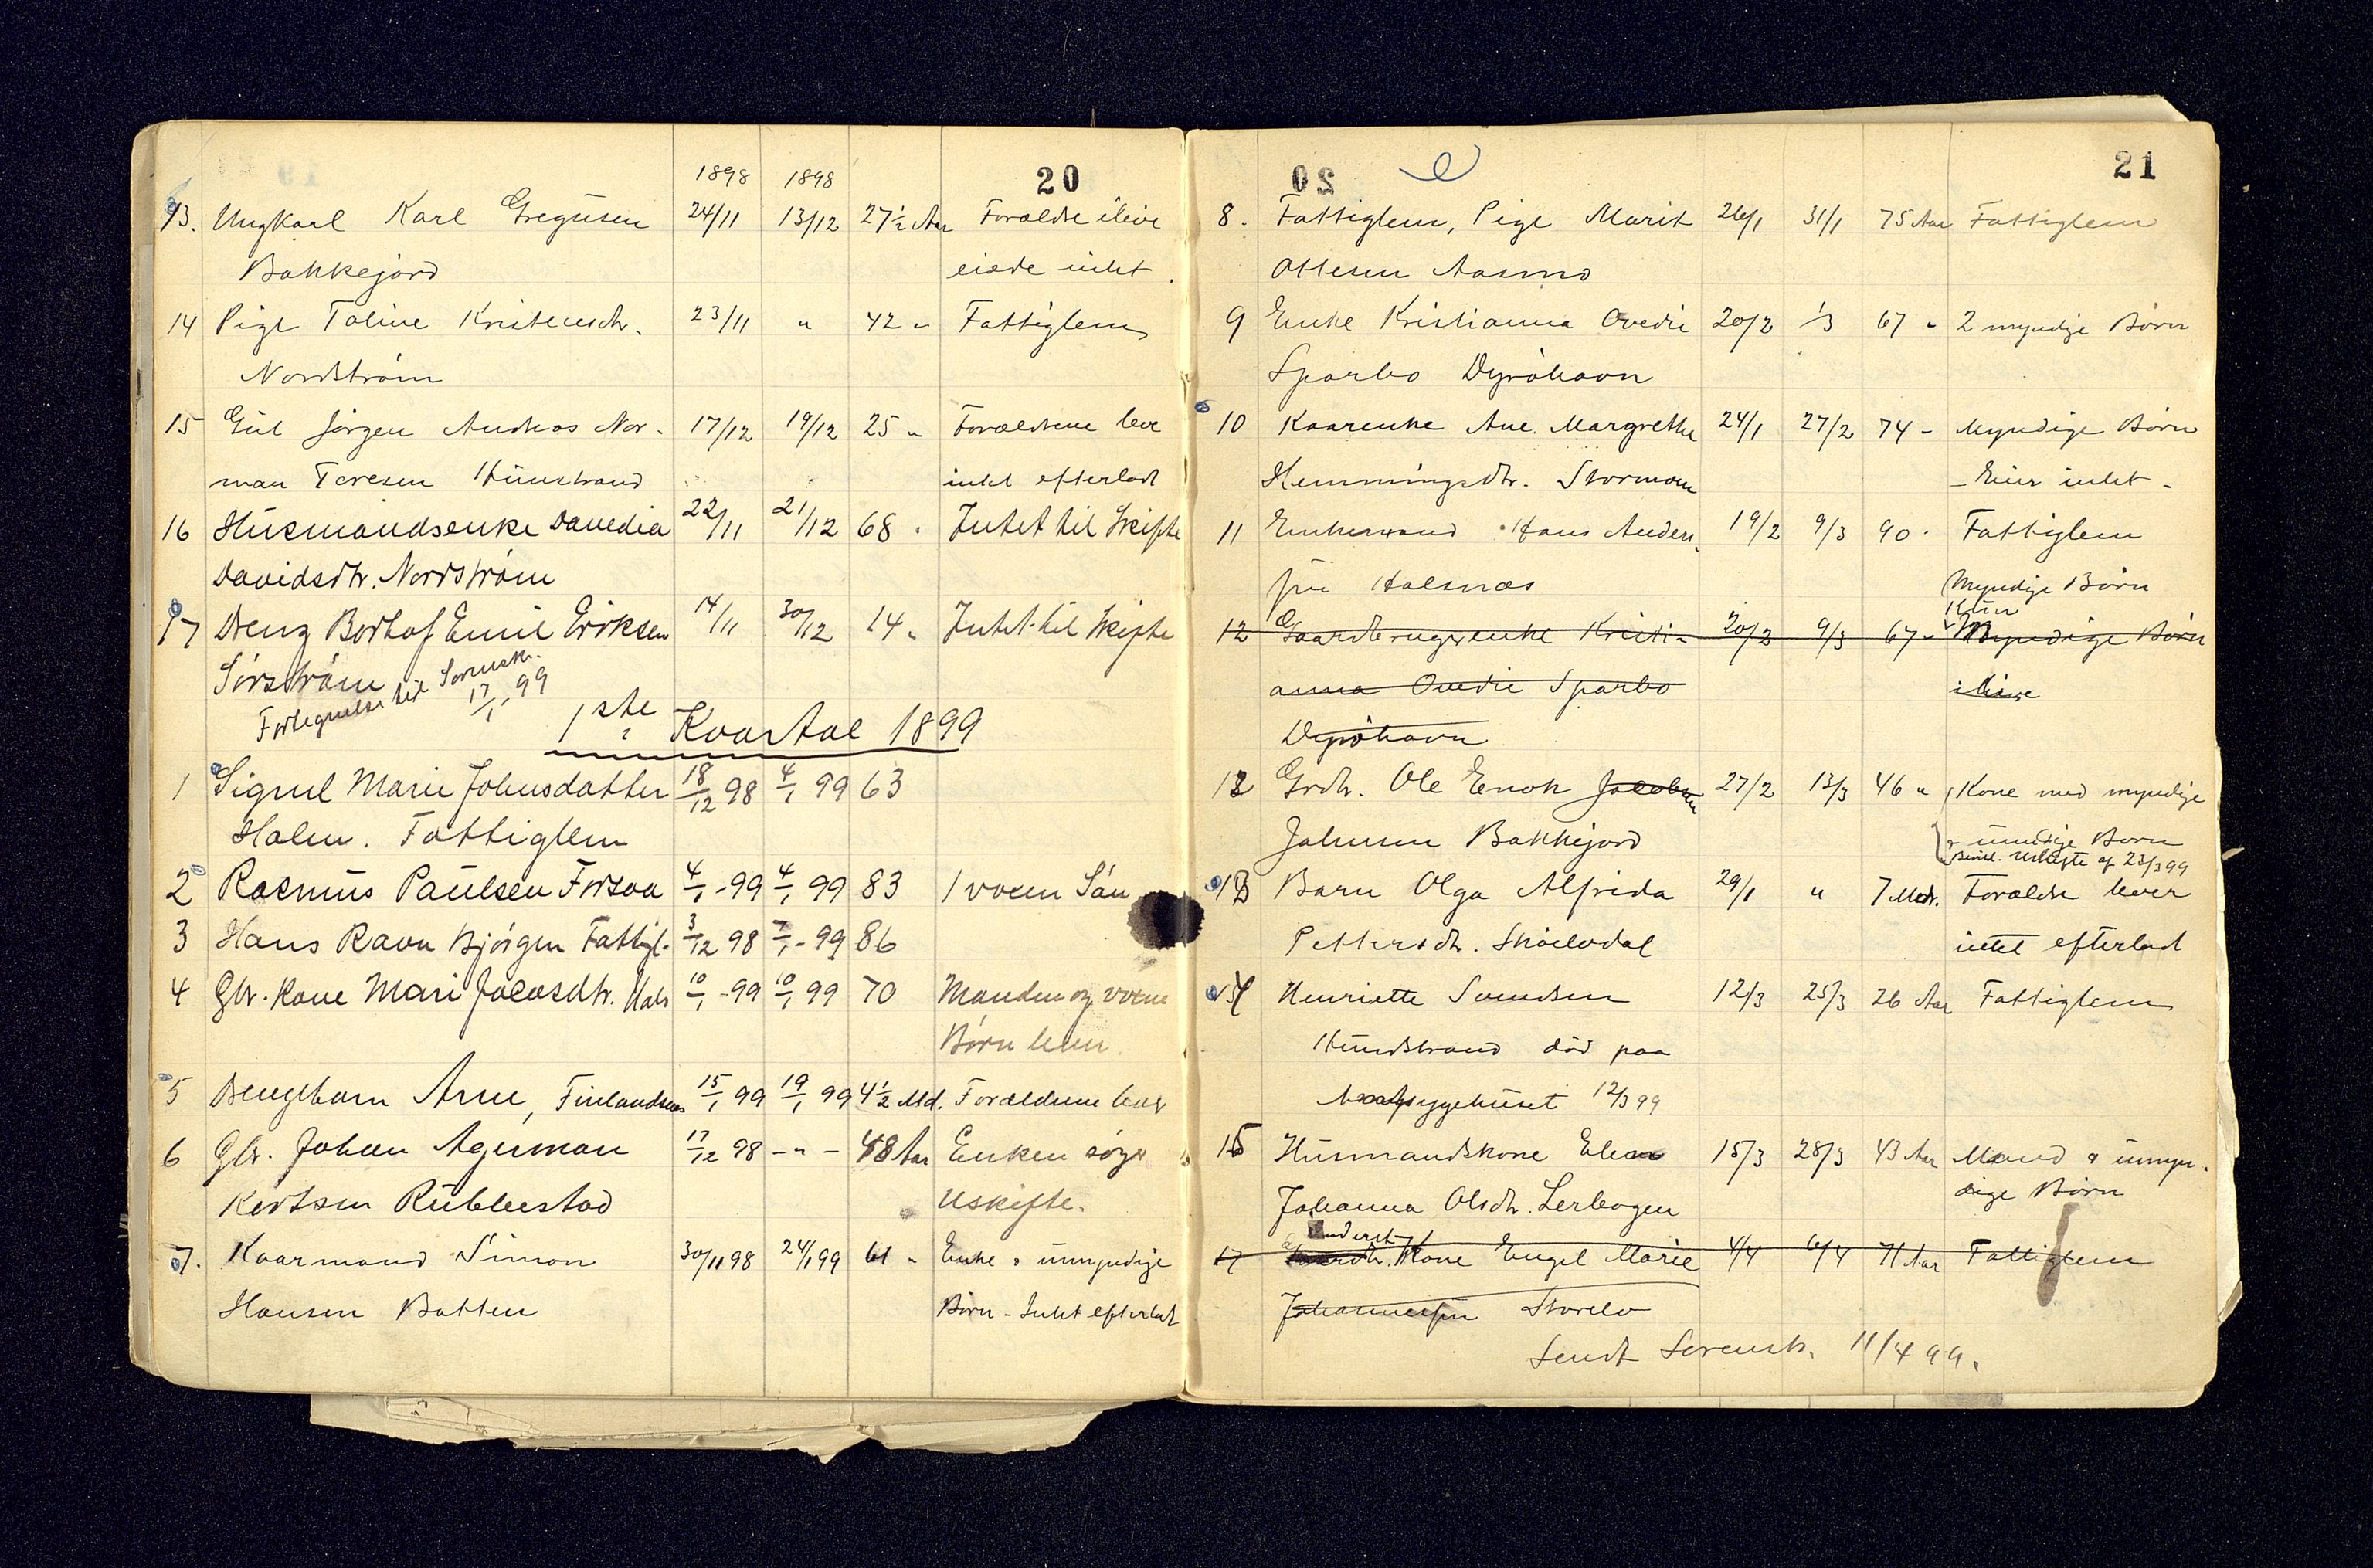 1898 1898 20
13. Ungkarl Karl Gregusen 24/11 13/12 27 1/2 Aar Forældre ilive
Bakkejord eiede intet.
14 Pige Taline Kristensdtr. 23/11 " 42 " Fattiglem
Nordstrøm
15 Gut Jørgen Andreas Nor- 17/12 19/12 25 " Forældrene lever
man Toresen Hunstrand intet efterladt
16 Husmandsenke Davedia 22/11 21/12 68 " Intet til Skifte
Davidsdtr. Nordstrøm
17 Dreng Borthof Emil Eriksen 14/11 30/12 14 " Intet til Skifte
Sørstrøm
Fortegnelse til Sorensk. 17/1 99
1ste Kvartal 1899
1 Signel Marie Johnsdatter 18/12 98 4/1 99 63
Holm. Fattiglem
2 Rasmus Paulsen Forsaa 4/1 -99 4/1 99 83 1 voxen Søn
3 Hans Ravn Bjørgen Fattigl. 3/12 98 7/1 -99 86
4 Gbr. Kone Mari Jocasdtr. Hals 10/1 -99 10/1 99 70 Manden og voxne
Børn lever.
5 Dengebarn Arne, Finlandsnes 15/1 99 19/1 99 4 1/2 Md. Forældrene lever
6 Gbr. Johan Agerman 17/12 98 - " - 48 Aar Enken søger
Kertsen Rubbestad Uskifte.
7. Kaarmand Simon 30/11 98 24/1 99 61 " Enke & umyndige
Hansen Botten Børn - Intet efterladt
20 21
8. Fattiglem, Pige Marit 26/1 31/1 75 Aar Fattiglem
Ottesen Aasmo
9 Enke Kristianna Ovedie 20/2 1/3 67 " 2 myndige Børn
Sparbo Dyrøhavn
10 Kaarenke Ane Margrethe 24/1 27/2 74 - Myndige Børn
Hemmingsdtr. Stormoen - Eier intet -
11 Enkemand Hans Anders. 19/2 9/3 90 " Fattiglem
fra Halsnæs Myndige Børn
Kun
12 Gaardbrugerenke Kristi- 20/2 9/3 67 " Myndige Børn
anna Ovedie Sparbo ilive
Dyrøhavn
12 Grdb. Ole Enok Jacobsen 27/2 13/3 46 " Kone med myndige
Johnsen Bakkejord & umyndige Børn
Bevil. Uskifte af 23/3 99
13 Barn Olga Alfrida 29/1 " 7 Mdr. Forældre lever
Pettersdtr. Skøelvdal intet efterladt
14 Henriette Svendsen 12/3 25/3 26 Aar Fattiglem
Hundstrand død paa
sygehuset 12/3 99
15 Husmandskone Elen 15/3 28/3 43 Aar Mand & umyn-
Johanna Olsdtr. Lerbogen dige Børn
Inderst
17 Kone Engel Marie 4/4 6/4 71 Aar Fattiglem
Johannesen Storelv
Sendt Sorensk. 11/4 99.